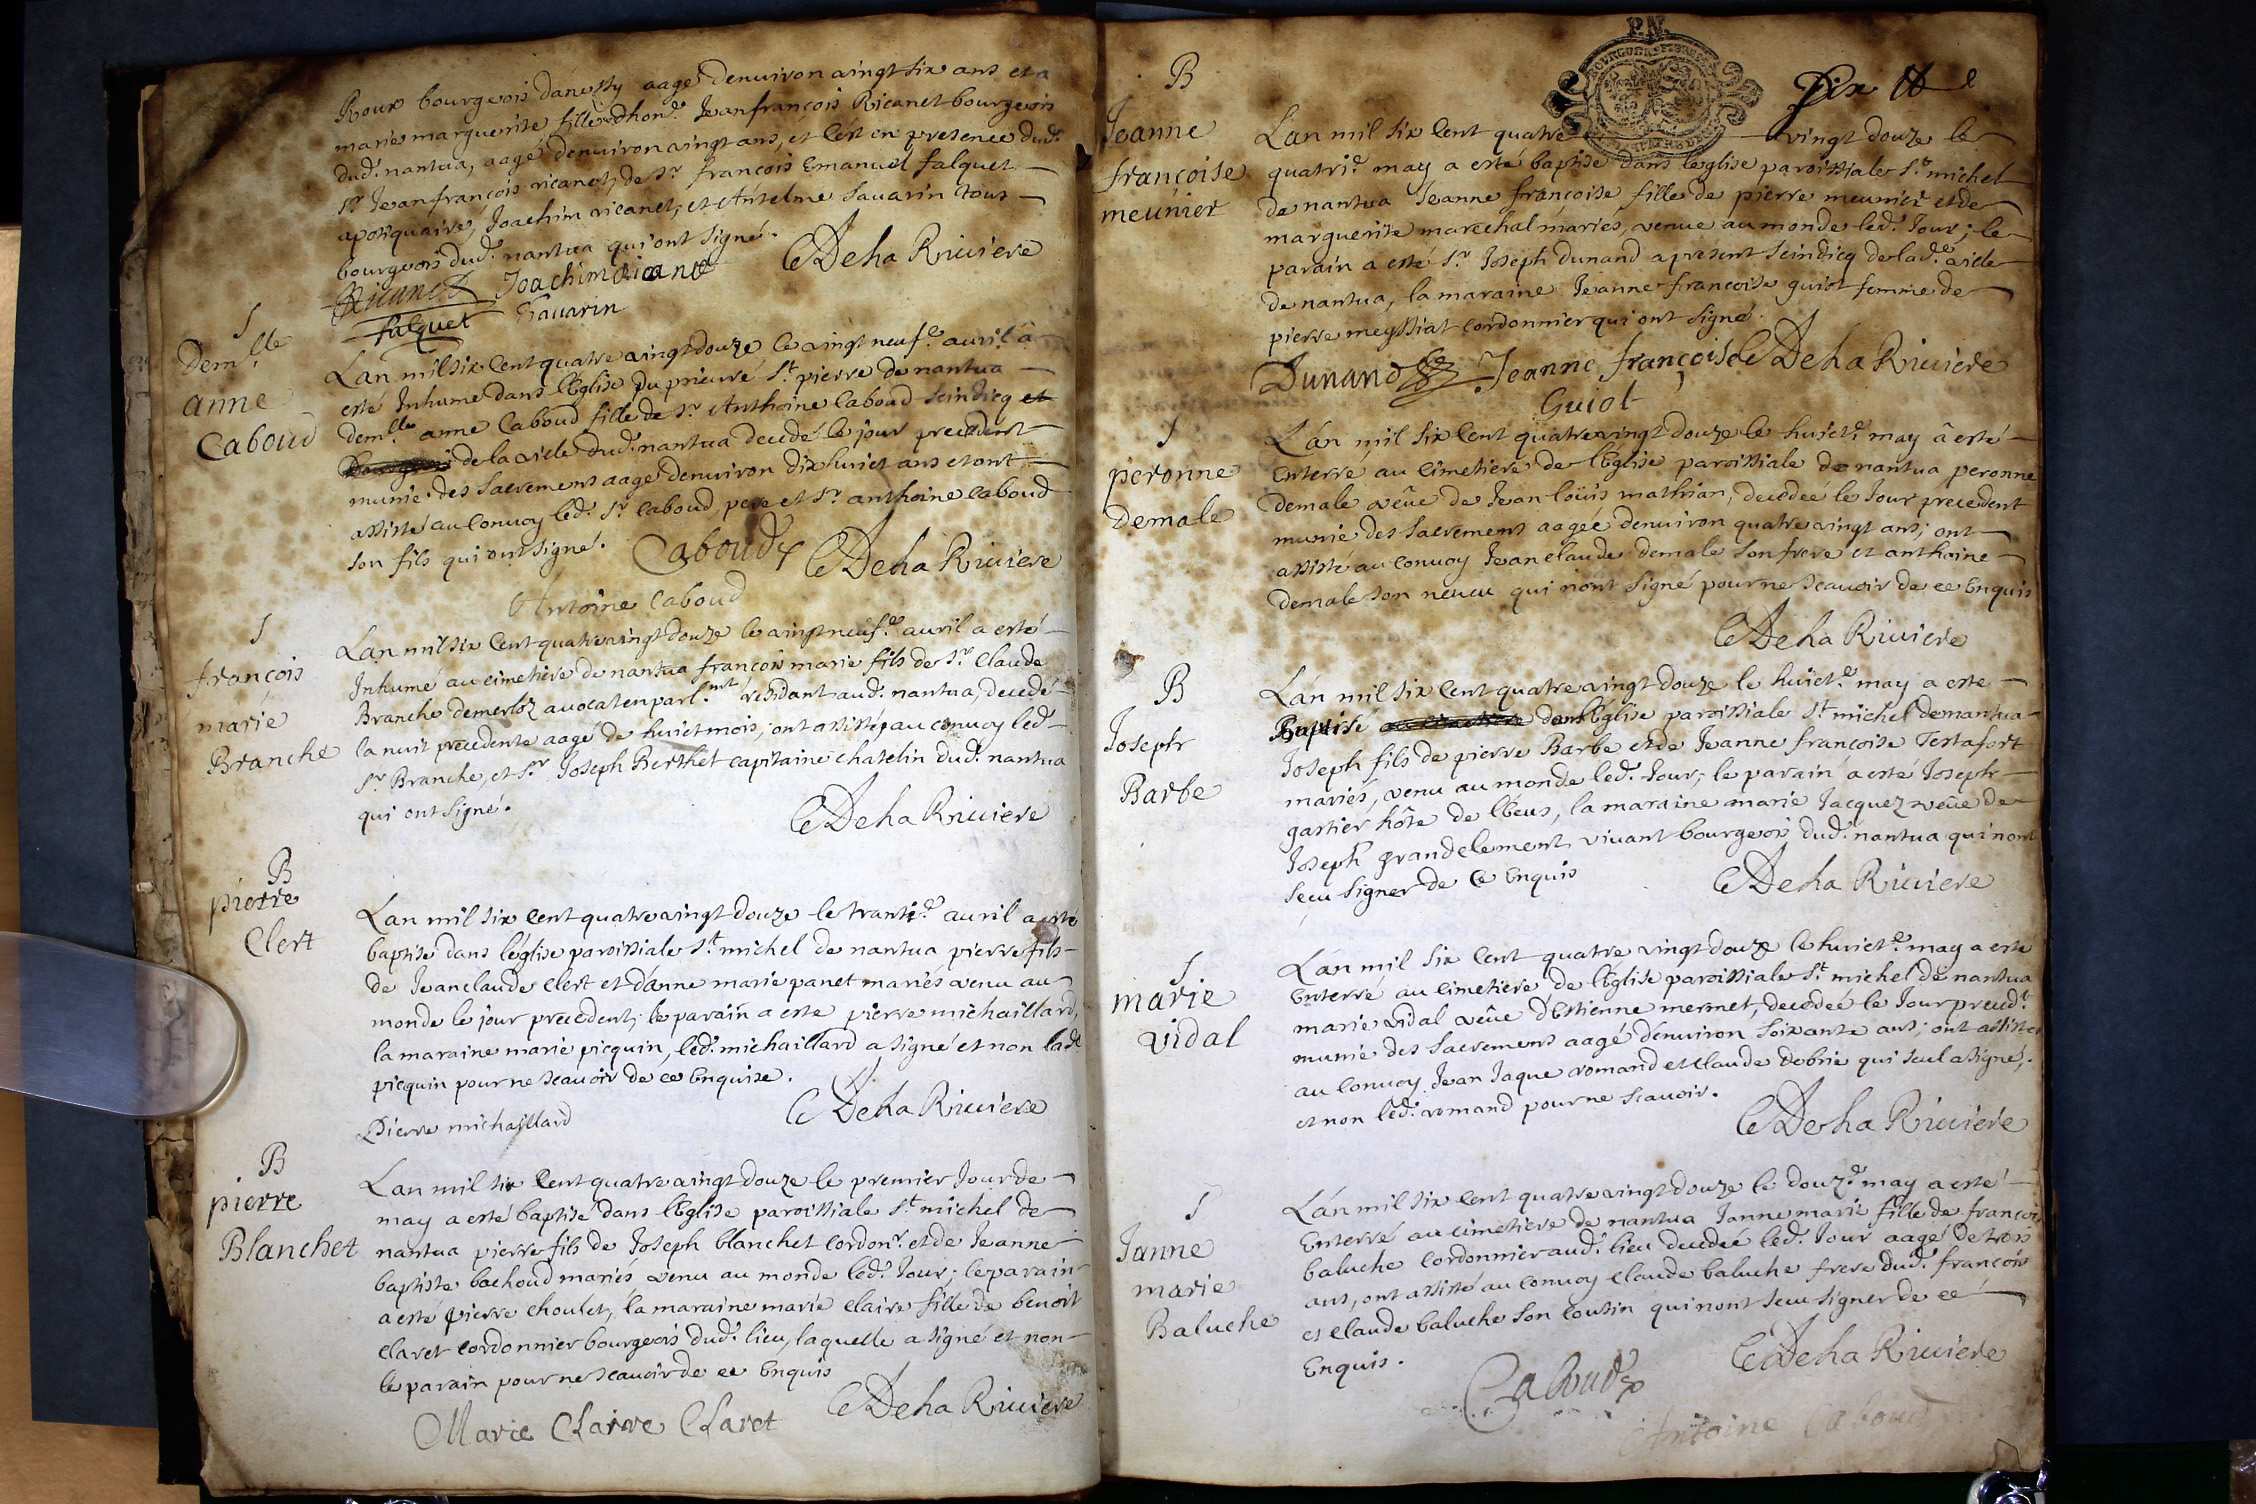 Roux bourgeois danessy aagé denuiron vingt six ans et a
marie marguerite fille dhon.e Jeanfrançois Ricanet bourgeois
dud. nantua, aagé denuiron vingt ans, et cest en presence dud.
Sr. Jeanfrançois ricanet, de Sr. françois Emanuel falquet
apotiquaire, Joachim ricanet, et Antelme Sauarin tous
bourgeois dud. nantua qui ont signé.
CDeha Riuiere
Ricanet Joachim Ricanet
falquet Sauarin
S
Dem.lle
anne
Caboud
Lan mil six cent quatre vingt douze le vingt neuf.e auril â
esté Inhumé dans lEglise du prieuré St. pierre de nantua
dem.lle anne Caboud fille de Sr. Anthoine Caboud Scindicq et
de la ville dud. nantua decedé le jour precedent
munie des sacremens aagé denuiron dixhuict ans et ont
assisté au conuoy led. Sr. Caboud pere et Sr. anthoine Caboud
son fils qui ont signé.
Caboud CDeha Riuiere
Antoine Caboud
S
françois
marie
Branche
Lan mil six cent quatre vingt douze le vingt neuf.e auril a esté
Inhumé au cimetiere de nantua françois marie fils de Sr. Claude
Branche demerloz auocat en parl.mt residant aud. nantua, decedé
la nuit precedente aagé de huict mois, ont assisté au conuoy led.
Sr. Branche, et Sr. Joseph Berthet capitaine chatelin dud. nantua
qui ont signé.
CDeha Riuiere
B
pierre
Clert
Lan mil six cent quatre vingt douze le tranti.e auril a esté
baptisé dans léglise paroissiale St. michel de nantua pierre fils
de Jeanclaude Clert et d'anne marie panet mariés venu au
monde le jour precedent, le parain a esté pierre michaillard,
la maraine marie picquin, led. michaillard a signé et non lade
picquin pour ne scauoir de ce Enquise.
CDeha Riuiere
Pierre michaillard
B
pierre
Blanchet
Lan mil six Cent quatre vingt douze le premier Jour de
may a esté baptisé dans lEglise paroissiale St. michel de
nantua pierre fils de Joseph blanchet cordonr. et de Jeanne
baptiste bachoud mariés venu au monde led. Jour; le parain
a esté pierre choulet, la maraine marie claire fille de benoit
claret cordonnier bourgeois dud. lieu, laquelle a signé et non
le parain pour ne scauoir de ce Enquis
CDeha Riuiere
Marie Claire Claret
Dix
B
Jeanne
françoise
meunier
Lan mil six Cent quatre vingt douze le
quatri.e may a esté baptisé dans leglise paroissiale St. michel
de nantua Jeanne françoise fille de pierre meunier et de
marguerite marechal mariés, venue au monde led. Jour; le
parain a esté Sr. Joseph dunand a present scindicq de lad.e ville
de nantua, la maraine Jeanne françoise guiot femme de
pierre meyssiat cordonnier qui ont signé.
Dunand Jeanne françoise CDeha Riuiere
Guiot
S
peronne
Demale
Lan mil six Cent quatre vingt douze le huict.e may â esté
Enterré au cimetiere de lEglise paroissiale de nantua peronne
demale veûe de Jean loüis mathian, decedeé le Jour precedent
munie des sacremens aagée denuiron quatre vingt ans; ont
assisté au conuoy Jean claude demale son frere et anthoine
demale son neueu qui n'ont signé pour ne scauoir de ce Enquis
CDeha Riuiere
B
Joseph
Barbe
Lan mil six Cent quatre vingt douze le huict.e may a esté
Baptisé au cimetiere dans lEglise paroissiale St. michel de nantua
Joseph fils de pierre Barbe et de Jeanne françoise Testafort
mariés, venu au monde led. Jour; le parain a esté Joseph
gartier hôte de lEcus, la maraine marie Jacquez veûe de
Joseph grandclement viuant bourgeois dud. nantua qui n'ont
sceu signer de ce Enquis
CDeha Riuiere
S
marie
vidal
Lan mil six Cent quatre vingt douze le huict.e may a esté
Enterré au cimetiere de lEglise paroissiale St. michel de nantua
marie vidal veûe d'Estienne mermet, decedeé le Jour preced.t
munie des sacremens aagé denuiron soixante ans; ont assisté
au conuoy Jean Jaque romand et Claude debrie qui seul a signé,
et non led. romand pour ne scauoir.
CDeha Riuiere
S
Janne
marie
Baluche
Lan mil six Cent quatre vingt douze le douz.e may a esté
Enterré au cimetiere de nantua Janne marie fille de françois
baluche cordonnier aud. lieu decedee led. Jour aagé de trois
ans, ont assisté au conuoy claude baluche frere dud. françois
et claude baluche son cousin qui n'ont sceu signer de ce
Enquis.
CDeha Riuiere
Caboud
Antoine Caboud